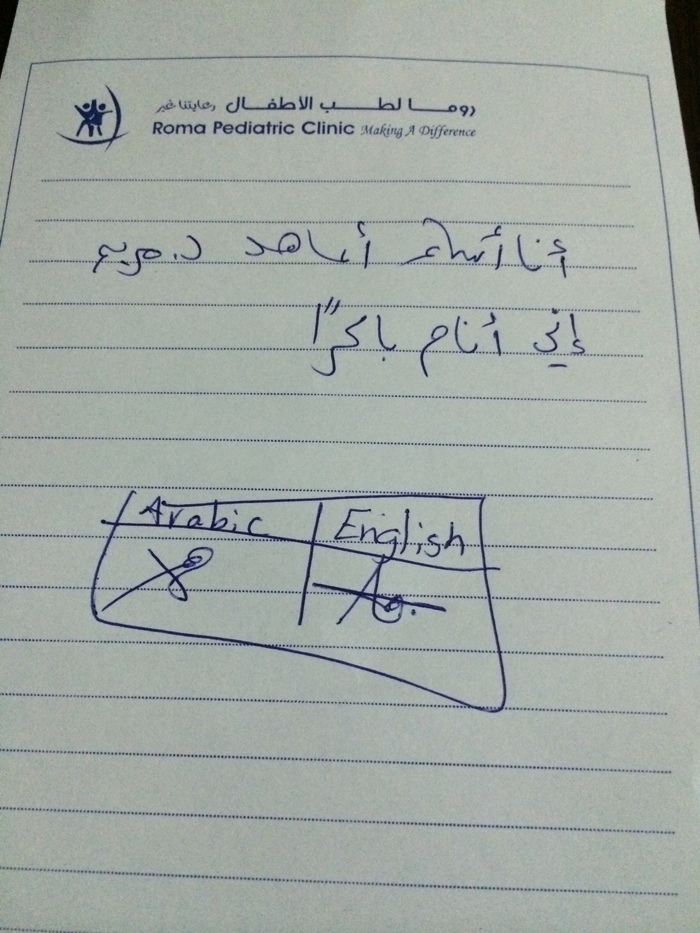 روما لطب الأطفال رعايتنا غير
Roma Pediatric Clinic Making A Difference
أنا أسامر أشاهد د. مريم
إني أنام باكرًا
Arabic English